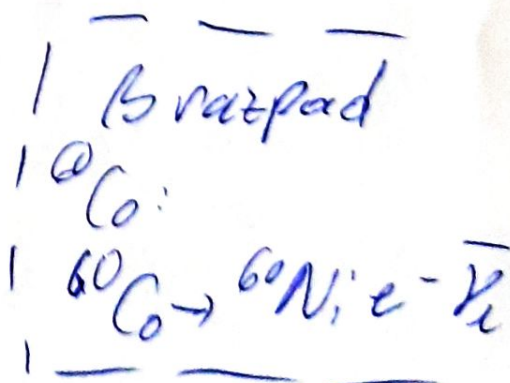 β razpad
⁶⁰Co:
⁶⁰Co → ⁶⁰Ni e⁻ ν̄ₑ